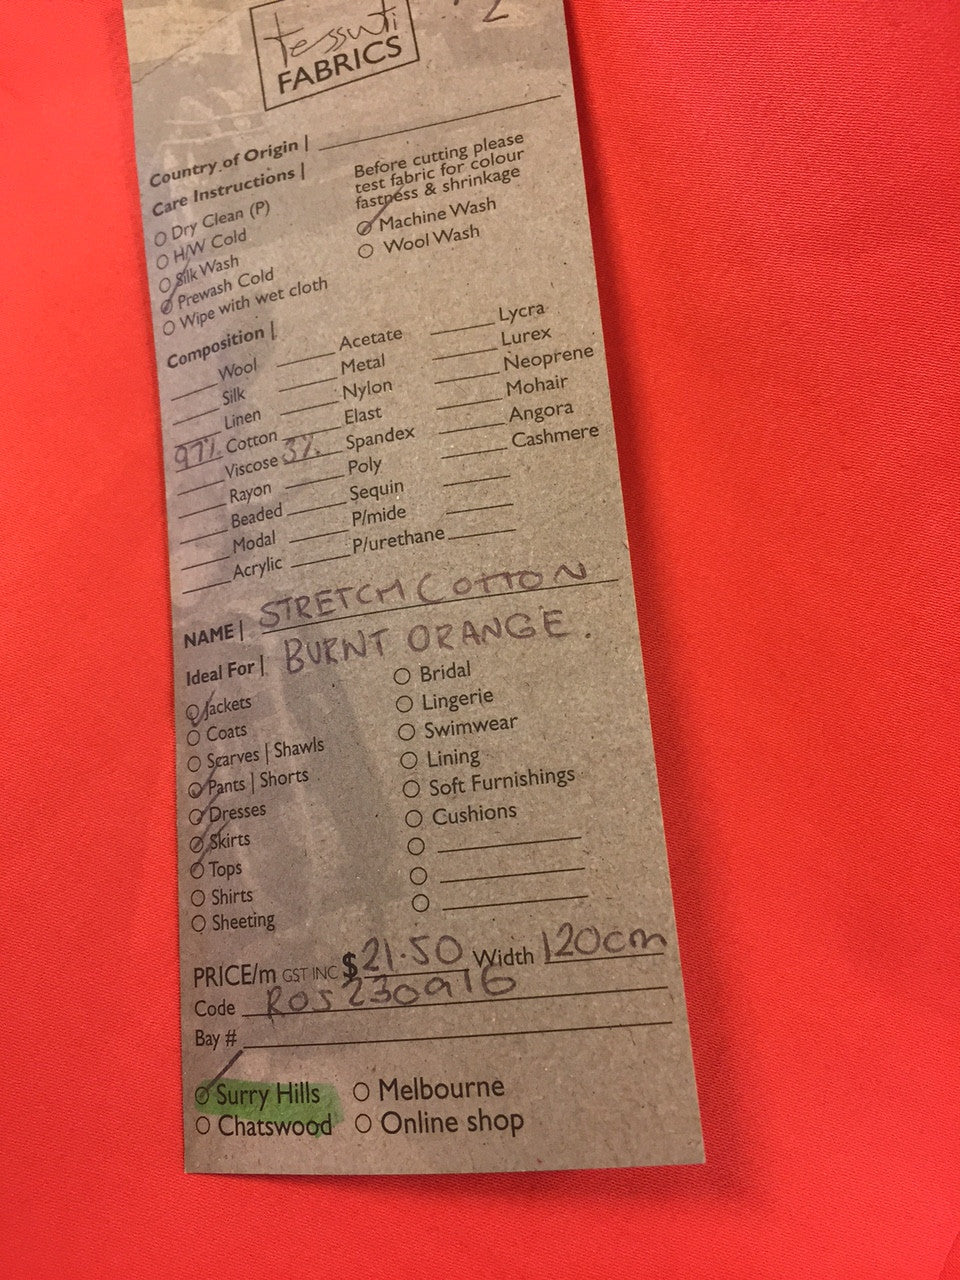 2
tessuti
FABRICS
Country of Origin |
Care Instructions |
Dry Clean (P)
H/W Cold
Silk Wash
Prewash Cold
Wipe with wet cloth
Before cutting please
test fabric for colour
fastness & shrinkage
Machine Wash
Wool Wash
Composition |
Wool Acetate Lycra
Silk Metal Lurex
Linen Nylon Neoprene
97% Cotton Elast Mohair
Viscose 3% Spandex Angora
Rayon Poly Cashmere
Beaded Sequin
Modal P/mide
Acrylic P/urethane
NAME | STRETCH COTTON
Ideal For | BURNT ORANGE.
Jackets
Coats
Scarves | Shawls
Pants | Shorts
Dresses
Skirts
Tops
Shirts
Sheeting
Bridal
Lingerie
Swimwear
Lining
Soft Furnishings
Cushions
PRICE/m GST INC $21.50 Width 120cm
Code ROS230916
Bay #
Surry Hills Melbourne
Chatswood Online shop